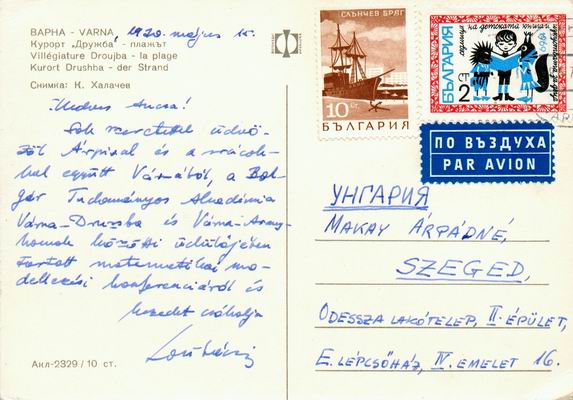 ВАРНА - VARNA, 1970. május 15.
Курорт „Дружба" - плажът
Villégiature Droujba - la plage
Kurort Drushba - der Strand
Снимка: К. Халачев
Kedves Anna!
Sok szeretettel üdvö-
zöl Árpival és a srácok-
kal együtt Várnából, a Bol-
gár Tudományos Akadémia
Várna-Druzba és Várna-Arany-
homok közötti üdülőjében
tartott matematikai mo-
dellezési konferenciáról és
kezedet csókolja
Акл-2329 / 10 ст.
СЛЪНЧЕВ БРЯГ
10 ст
БЪЛГАРИЯ
седмица на детската книга и
1960
БЪЛГАРИЯ
2
ПО ВЪЗДУХА
PAR AVION
УНГАРИЯ
MAKAY ÁRPÁDNÉ,
SZEGED,
ODESSZA LAKÓTELEP, II. ÉPÜLET,
E. LÉPCSŐHÁZ, IV. EMELET 16.